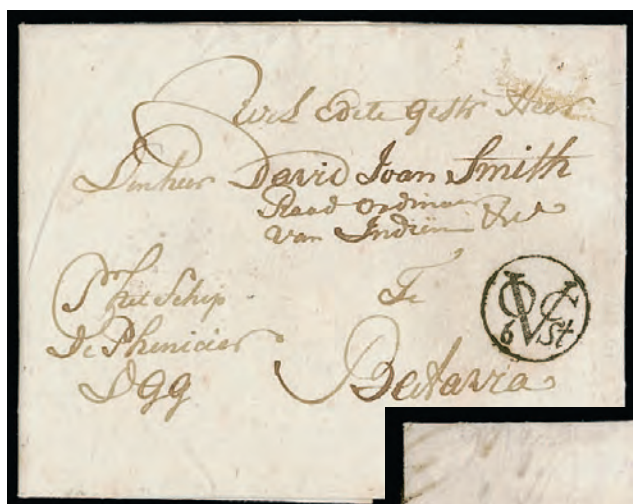 Edele gestr Heer
Mijnheer David Joan Smith
Raad ordinair
van Indiën &ca
Pr het Schip
Te
De Phenicier
DGG
Batavia
VOC
6 St